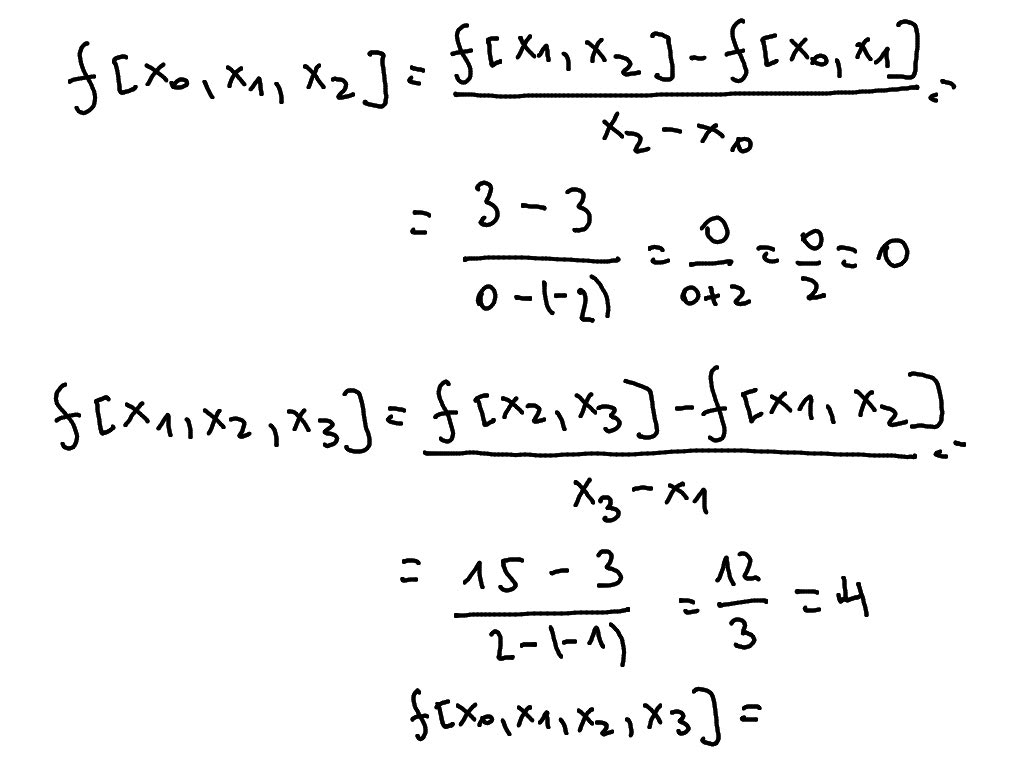 f[x₀, x₁, x₂] = (f[x₁, x₂] - f[x₀, x₁]) / (x₂ - x₀) =
= (3 - 3) / (0 - (-2)) = 0 / (0+2) = 0/2 = 0
f[x₁, x₂, x₃] = (f[x₂, x₃] - f[x₁, x₂]) / (x₃ - x₁) =
= (15 - 3) / (2 - (-1)) = 12/3 = 4
f[x₀, x₁, x₂, x₃] =